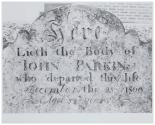 Here
Lieth the Body of
JOHN PARKIN,
who departed this life
December the
Aged years